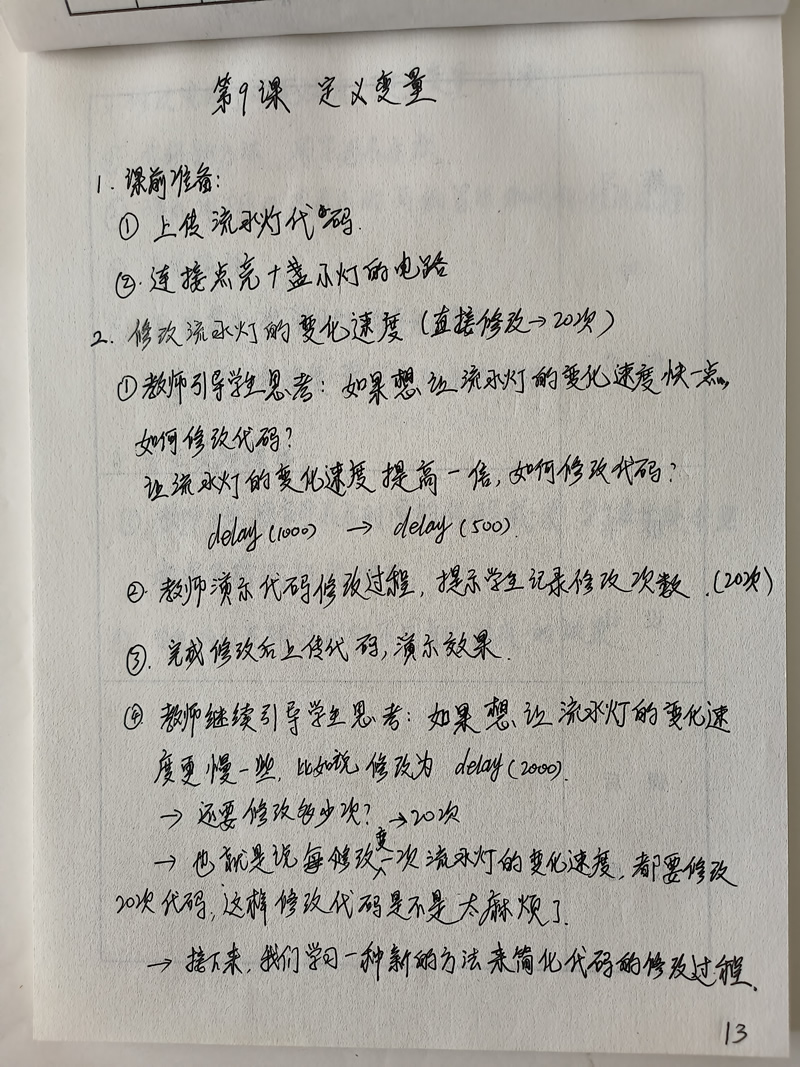 第9课 定义变量
1. 课前准备:
① 上传流水灯代码.
②. 连接点亮十盏小灯的电路
2. 修改流水灯的变化速度(直接修改→20次)
①教师引导学生思考: 如果想让流水灯的变化速度快一点,
如何修改代码?
让流水灯的变化速度提高一倍, 如何修改代码?
delay(1000) → delay(500).
②. 教师演示代码修改过程, 提示学生记录修改次数.(20次)
③. 完成修改后上传代码, 演示效果.
④ 教师继续引导学生思考: 如果想让流水灯的变化速
度更慢一些, 比如说修改为 delay(2000).
→ 还要修改多少次? →20次
→ 也就是说每修改变一次流水灯的变化速度, 都要修改
20次代码, 这样修改代码是不是太麻烦了.
→ 接下来, 我们学习一种新的方法来简化代码的修改过程.
13